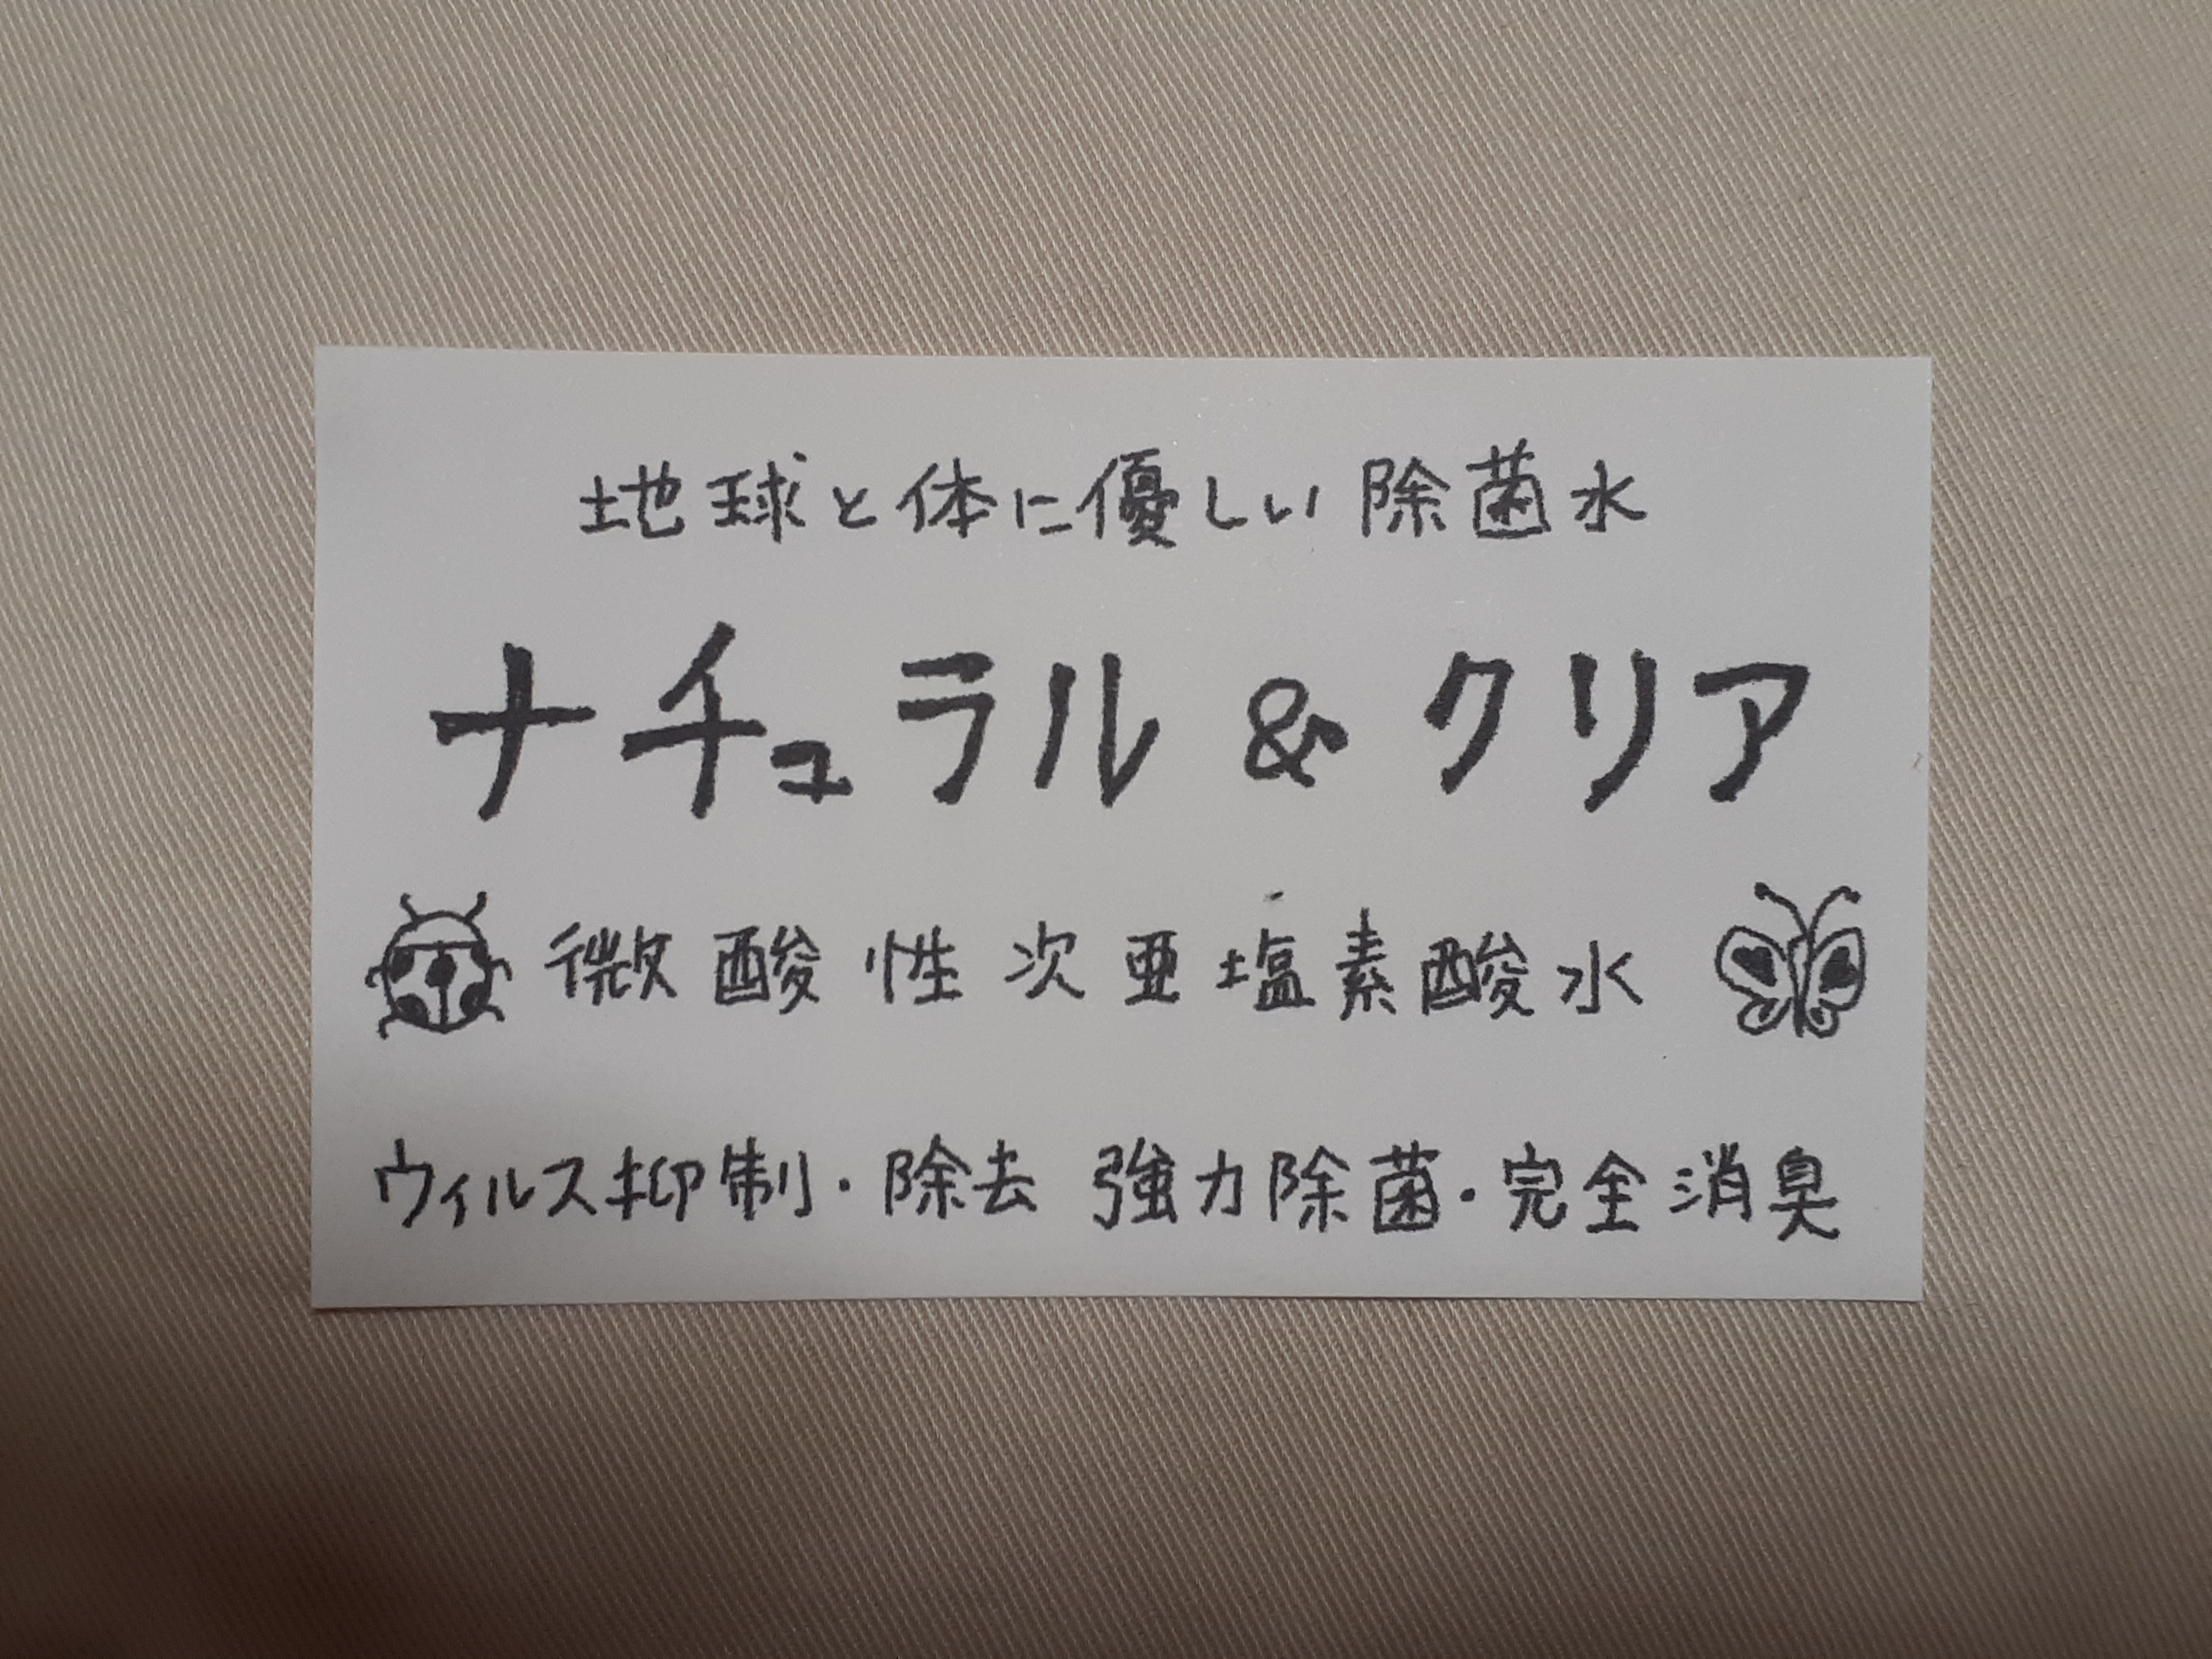 地球と体に優しい除菌水
ナチュラル & クリア
微酸性次亜塩素酸水
ウィルス抑制・除去 強力除菌・完全消臭